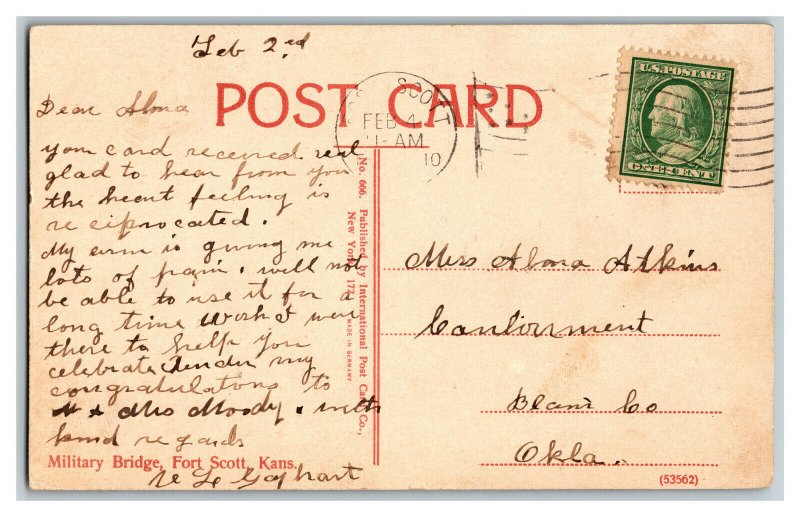 Feb 2ed
POST CARD
U.S. POSTAGE
ONE CENT
SCOTT
FEB 4
11-AM
10
Dear Alma
your card received real
glad to hear from you
the heart feeling is
reciprocated.
My arm is giving me
lots of pain. will not
be able to use it for a
long time Wish I were
there to help you
celebrate. tender my
congradulations to
Mr & Mrs Moody. with
kind regards
Military Bridge, Fort Scott, Kans.
No. 666. Published by International Post Card Co.,
New York. 172
MADE IN GERMANY
Miss Alma Atkins
Cantonment
Blaine Co
Okla.
(53562)